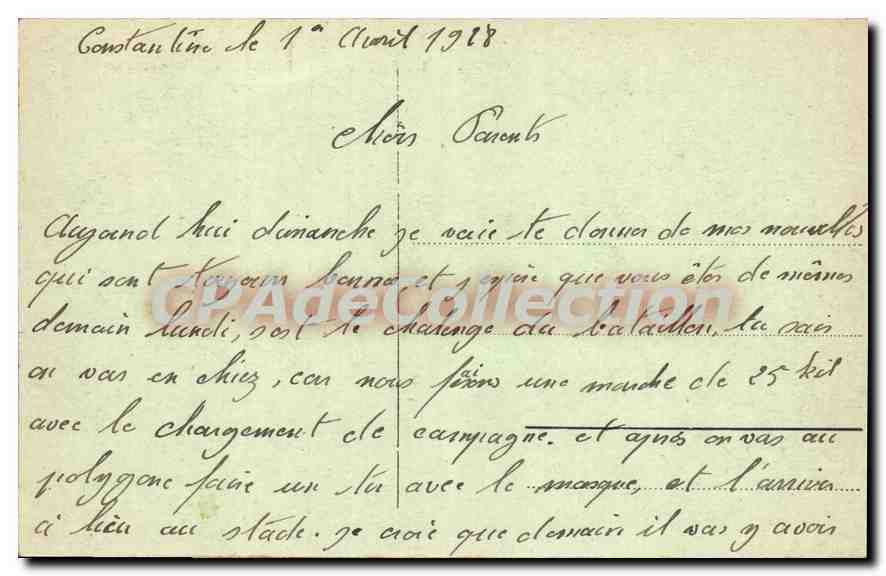 Constantine le 1er Avril 1928
Chèrs Parents
Aujourd hui dimanche je vaie te donner de mes nouvelles
qui sont toujours bonne et j'espère que vous êtes de mêmes
CPAdeCollection
demain lundi, sest le chalenge du bataillon, tu sais
on vas en chiez, car nous faisons une marche de 25 kil
avec le chargement de campagne. et après on vas au
polygone faire un tir avec le masque, et l'arriver
à lieu au stade. je croie que demain il vas y avoir